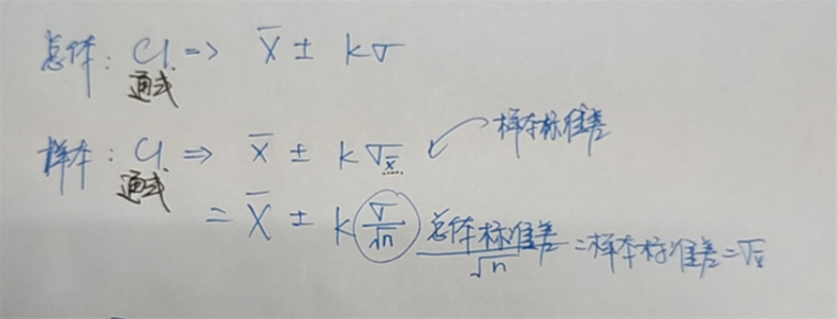 总体: CI. => X̄ ± kσ
通式
样本: CI. => X̄ ± kσx̄ 样本标准差
通式
= X̄ ± k σ/√n 总体标准差/√n = 样本标准差 = σx̄